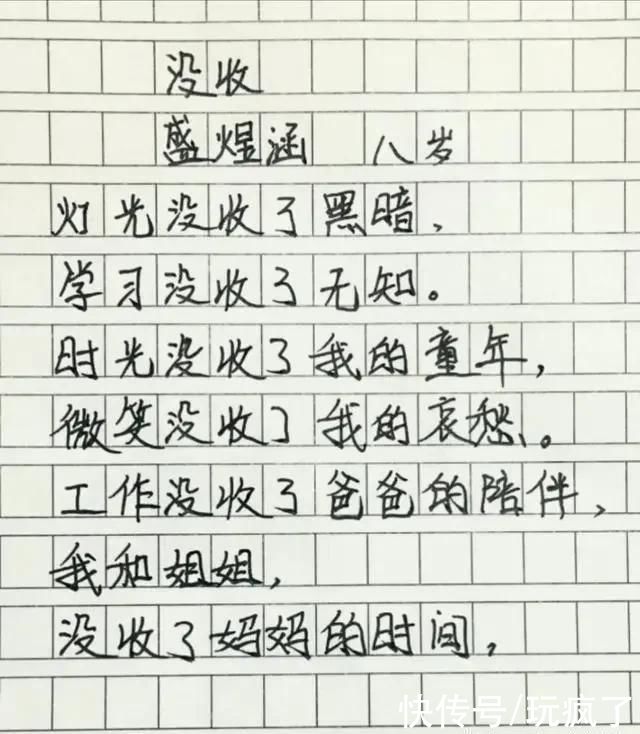 没收
盛煜涵 八岁
灯光没收了黑暗,
学习没收了无知。
时光没收了我的童年,
微笑没收了我的哀愁。
工作没收了爸爸的陪伴,
我和姐姐,
没收了妈妈的时间,
快传号/玩疯了